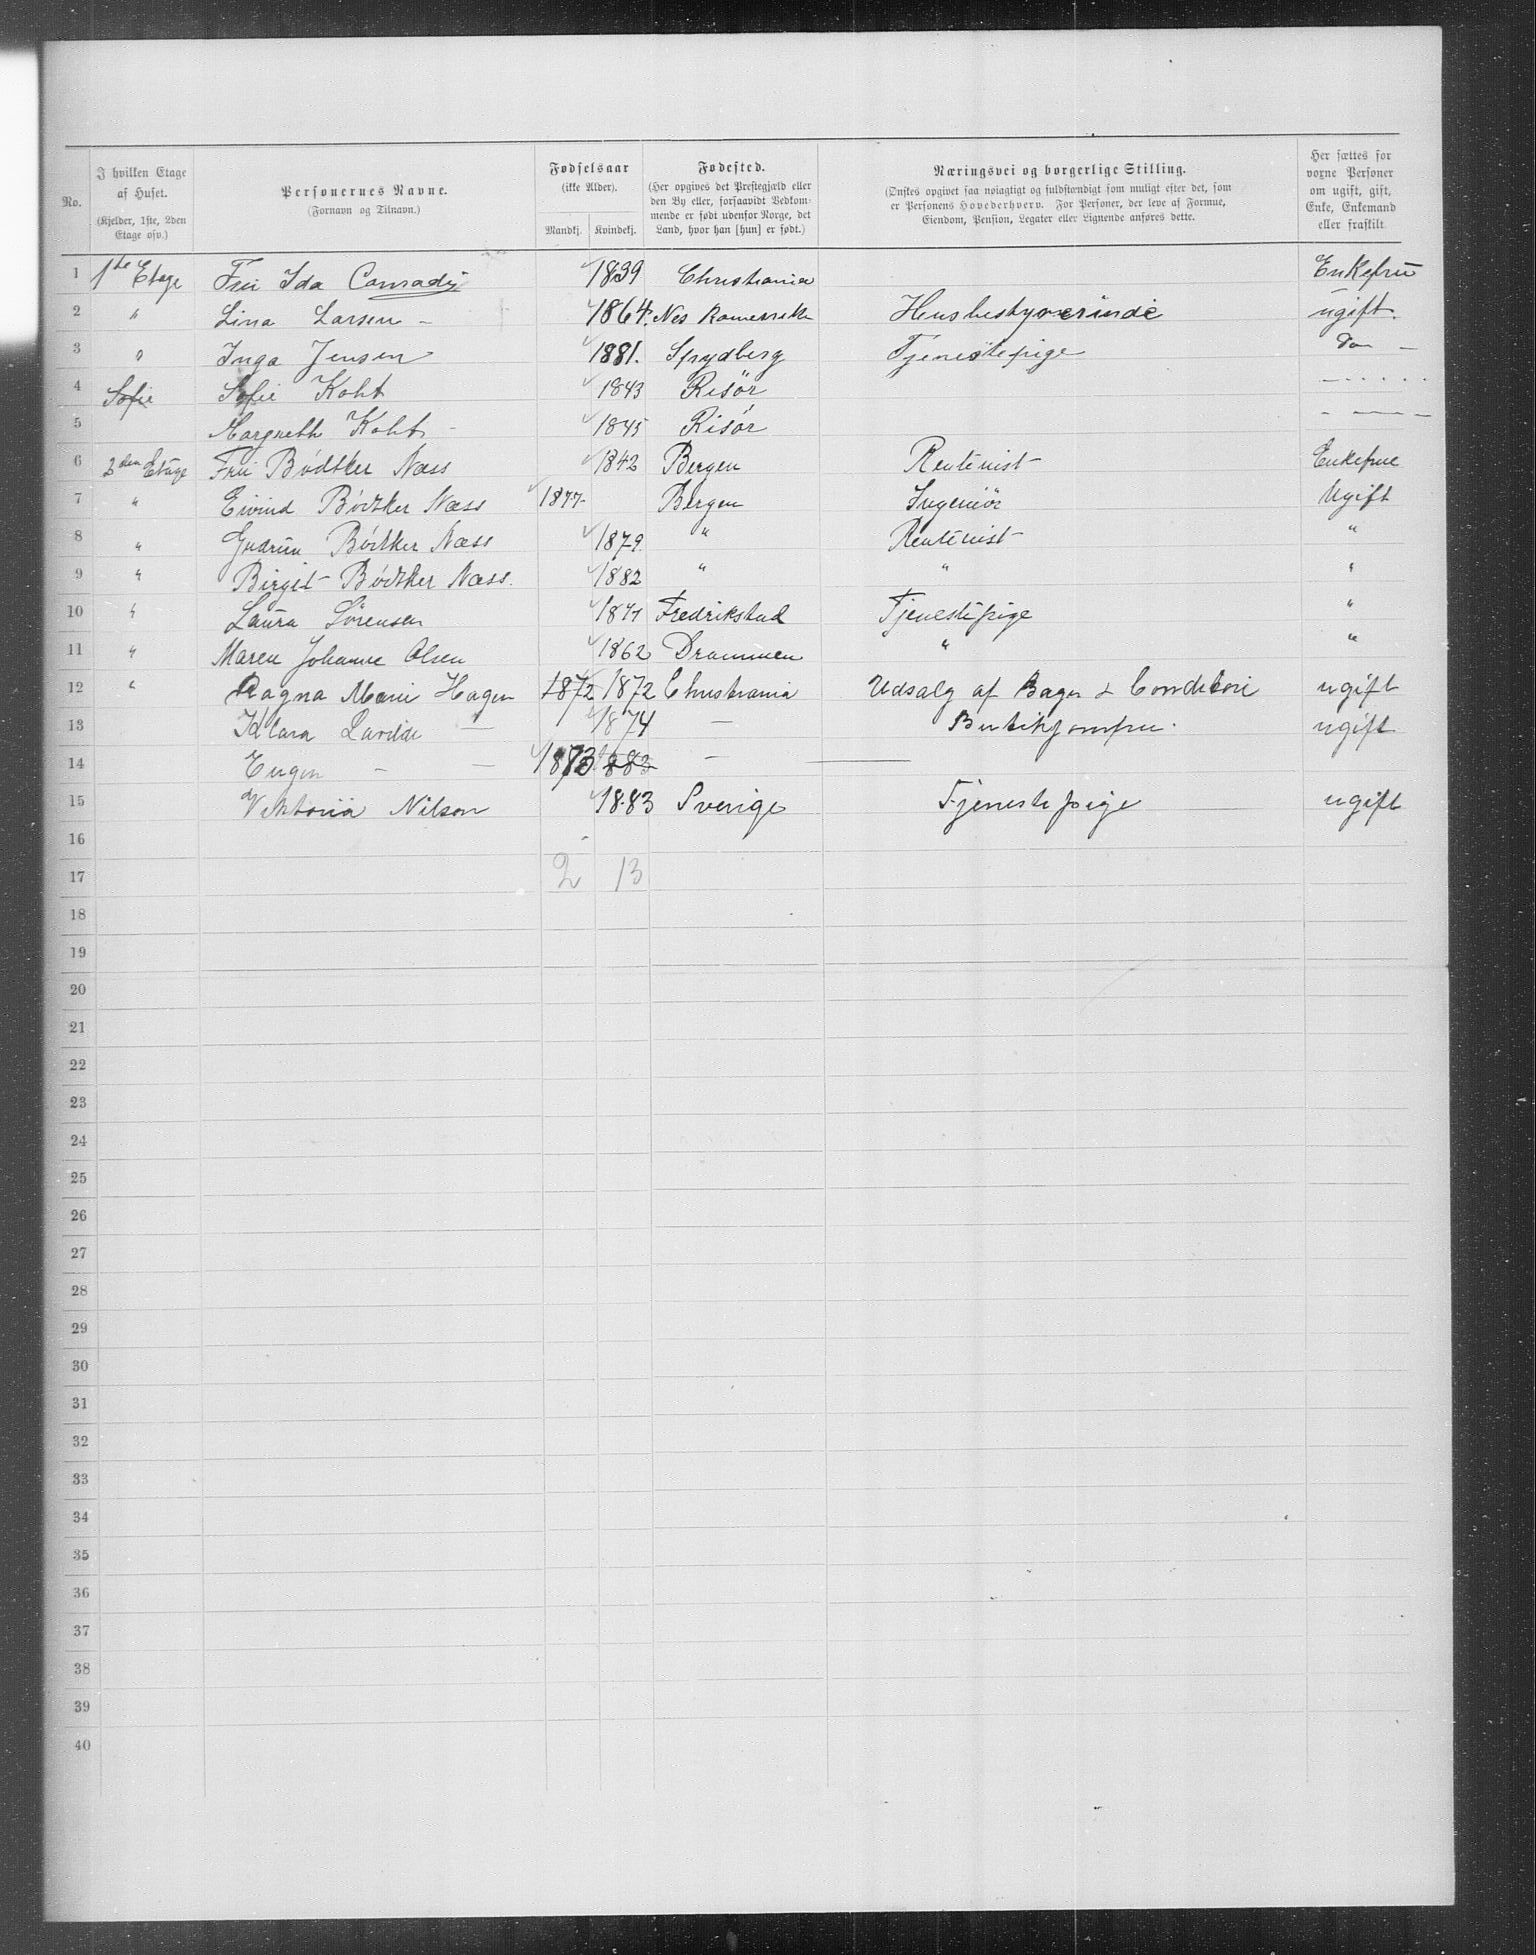 No.
I hvilken Etage
af Huset.
(Kjelder, 1ste, 2den
Etage osv.)
Personernes Navne.
(Fornavn og Tilnavn.)
Fødselsaar
(ikke Alder).
Mandkj. Kvindekj.
Fødested.
(Her opgives det Prestegjæld eller
den By eller, forsaavidt Vedkom-
mende er født udenfor Norge, det
Land, hvor han [hun] er født.)
Næringsvei og borgerlige Stilling.
(Ønskes opgivet saa nøiagtigt og fuldstændigt som muligt efter det, som
er Personens Hovederhverv. For Personer, der leve af Formue,
Eiendom, Pension, Legater eller Lignende anføres dette.
Her sættes for
voxne Personer
om ugift, gift,
Enke, Enkemand
eller fraskilt
1 1ste Etage Fru Ida Conradi 1839 Christiania Enkefru
2 " Lina Larsen – 1864. Nes Romerrike Husbestyrerinde ugift.
3 " Inga Jensen 1881. Spydberg Tjenestepige Do –
4 Sofie Sofie Koht 1843 Risör – . . . . .
5 Margreth Koht – 1845 Risör - — –
6 2den Etage Fru Bödtker Næss 1842 Bergen Rentenist Enkefrue
7 " Eivind Bödtker Næss 1877 Bergen Ingeniör Ugift
8 " Gudrun Bödtker Næss 1879 " Rentenist "
9 " Birgit Bödtker Næss. 1882 " " "
10 " Laura Sörensen 1871 Fredrikstad Tjenestepige "
11 " Maren Johanne Olsen 1862 Drammen " "
12 " Ragna Marie Hagen 1872 1872 Christiania Udsalg af Bager & Conditori ugift
13 Klara — 1874 — Butikjomfru. ugift
14 – — 1873 1883 — ——
15 Viktoria Nilson 1883 Sverige Tjenestepige ugift
16
17 2 13
18
19
20
21
22
23
24
25
26
27
28
29
30
31
32
33
34
35
36
37
38
39
40